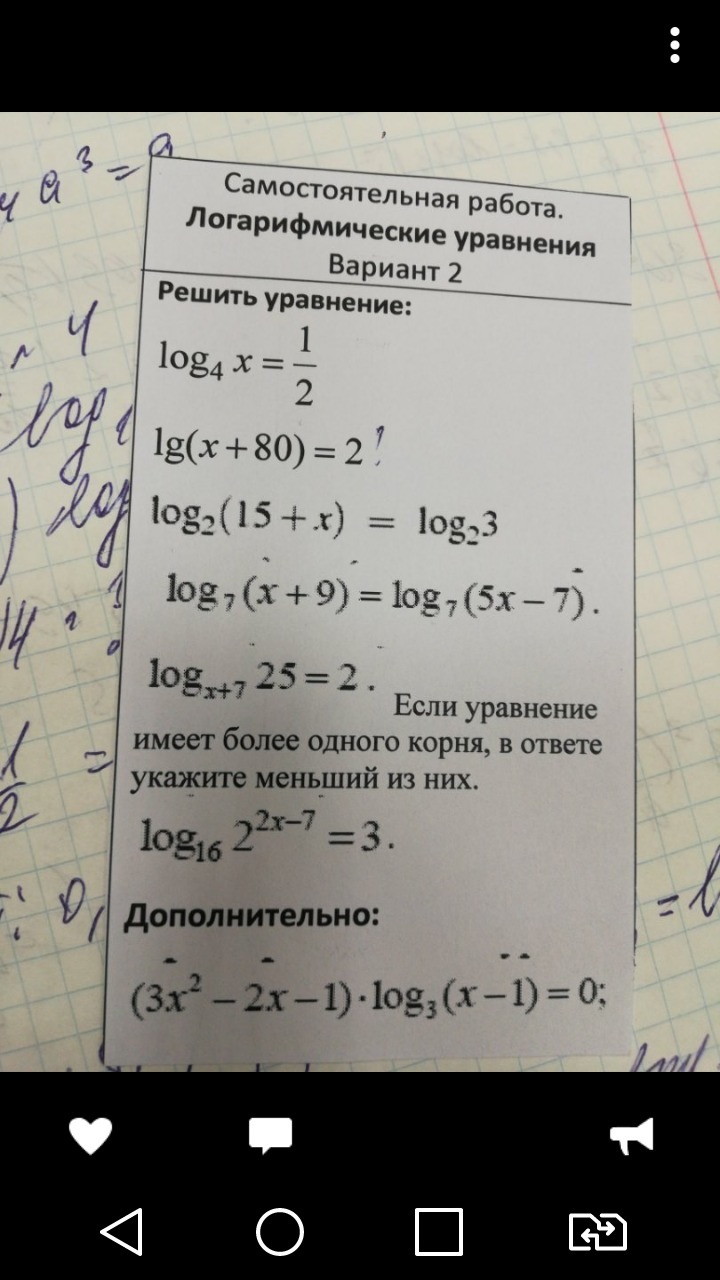 a³ = a
Самостоятельная работа.
Логарифмические уравнения
Вариант 2
Решить уравнение:
log₄ x = 1/2
lg(x + 80) = 2
log₂(15 + x) = log₂3
log₇(x + 9) = log₇(5x − 7).
logₓ₊₇ 25 = 2.
Если уравнение
имеет более одного корня, в ответе
укажите меньший из них.
log₁₆ 2²ˣ⁻⁷ = 3.
Дополнительно:
(3x² − 2x − 1) · log₃(x − 1) = 0;